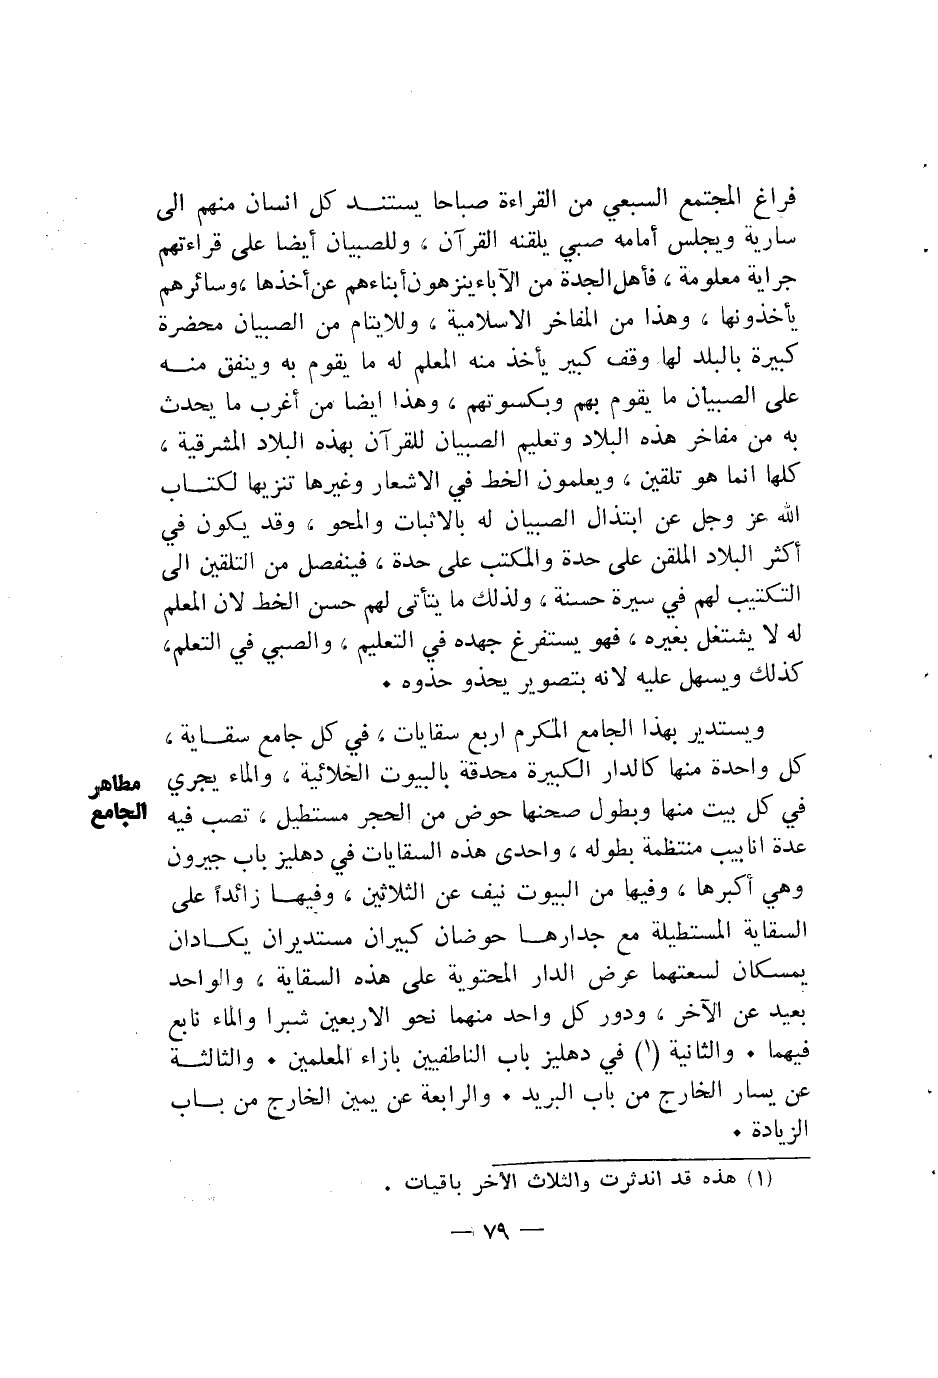 فراغ المجتمع السبعي من القراءة صباحا يستنـــد كل انسان منهم الى
سارية ويجلس أمامه صبي يلقنه القرآن ، وللصبيان أيضا على قراءتهم
جراية معلومة ، فأهل الجدة من الآباء ينزهون أبناءهم عن أخذها ، وسائرهم
يأخذونها ، وهذا من المفاخر الاسلامية ، وللايتام من الصبيان محضرة
كبيرة بالبلد لها وقف كبير يأخذ منه المعلم له ما يقوم به وينفق منــه
على الصبيان ما يقوم بهم وبكسوتهم ، وهذا ايضا من أغرب ما يحدث
به من مفاخر هذه البلاد وتعليم الصبيان للقرآن بهذه البلاد المشرقية ،
كلها انما هو تلقين ، ويعلمون الخط في الاشعار وغيرها تنزيها لكتــاب
الله عز وجل عن ابتذال الصبيان له بالاثبات والمحو ، وقد يكون في
أكثر البلاد الملقن على حدة والمكتب على حدة ، فينفصل من التلقين الى
التكتيب لهم في سيرة حسنة ، ولذلك ما يتأتى لهم حسن الخط لان المعلم
له لا يشتغل بغيره ، فهو يستفرغ جهده في التعليم ، والصبي في التعلم ،
كذلك ويسهل عليه لانه بتصوير يحذو حذوه •
ويستدير بهذا الجامع المكرم اربع سقايات ، في كل جامع سقــاية ،
كل واحدة منها كالدار الكبيرة محدقة بالبيوت الخلائية ، والماء يجري
مطاهر
الجامع
في كل بيت منها وبطول صحنها حوض من الحجر مستطيل ، تصب فيه
عدة انابيب منتظمة بطوله ، واحدى هذه السقايات في دهليز باب جيرون
وهي أكبرها ، وفيها من البيوت نيف عن الثلاثين ، وفيهــا زائداً على
السقاية المستطيلة مع جدارهــا حوضان كبيران مستديران يكــادان
يمسكان لسعتهما عرض الدار المحتوية على هذه السقاية ، والواحد
بعيد عن الآخر ، ودور كل واحد منهما نحو الاربعين شبرا والماء نابع
فيهما • والثانية (١) في دهليز باب الناطفيين بازاء المعلمين • والثالثــة
عن يسار الخارج من باب البريد • والرابعة عن يمين الخارج من بــاب
الزيادة •
(١) هذه قد اندثرت والثلاث الآخر باقيات .
— ٧٩ —